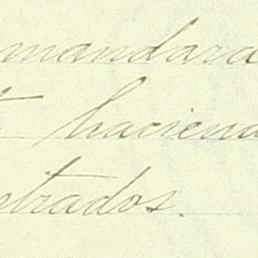 mandara
haciend
trados.